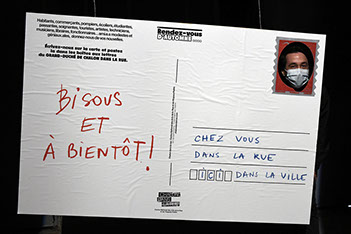 Habitants, commerçants, pompiers, écoliers, étudiantes,
passantes, soignantes, touristes, artistes, techniciens,
musiciens, libraires, fonctionnaires
géniaux.ales, donnez-nous de vos nouvelles.
Écrivez-nous sur la carte et postez
la dans les boîtes aux lettres
du GRAND-DUCHÉ DE CHALON DANS LA RUE.
Rendez-vous
D'AUTOMNE
BISOUS
ET
À BIENTÔT!
CHEZ VOUS
DANS LA RUE
ICI DANS LA VILLE
CHALON
DANS
LA RUE